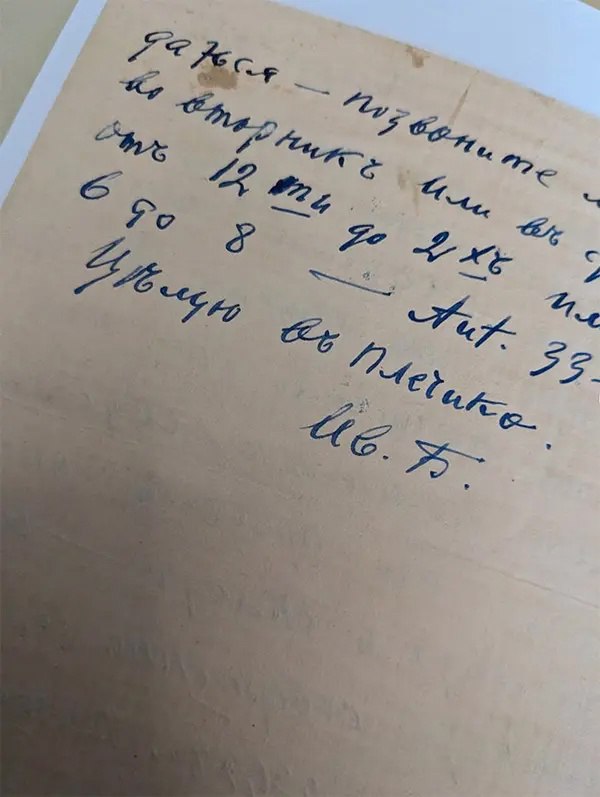 даться — позвоните
во вторникъ или въ
отъ 12 ти до 2 хъ или
6 до 8 — Aut. 33-
Цѣлую въ плечико.
Ив. Б.